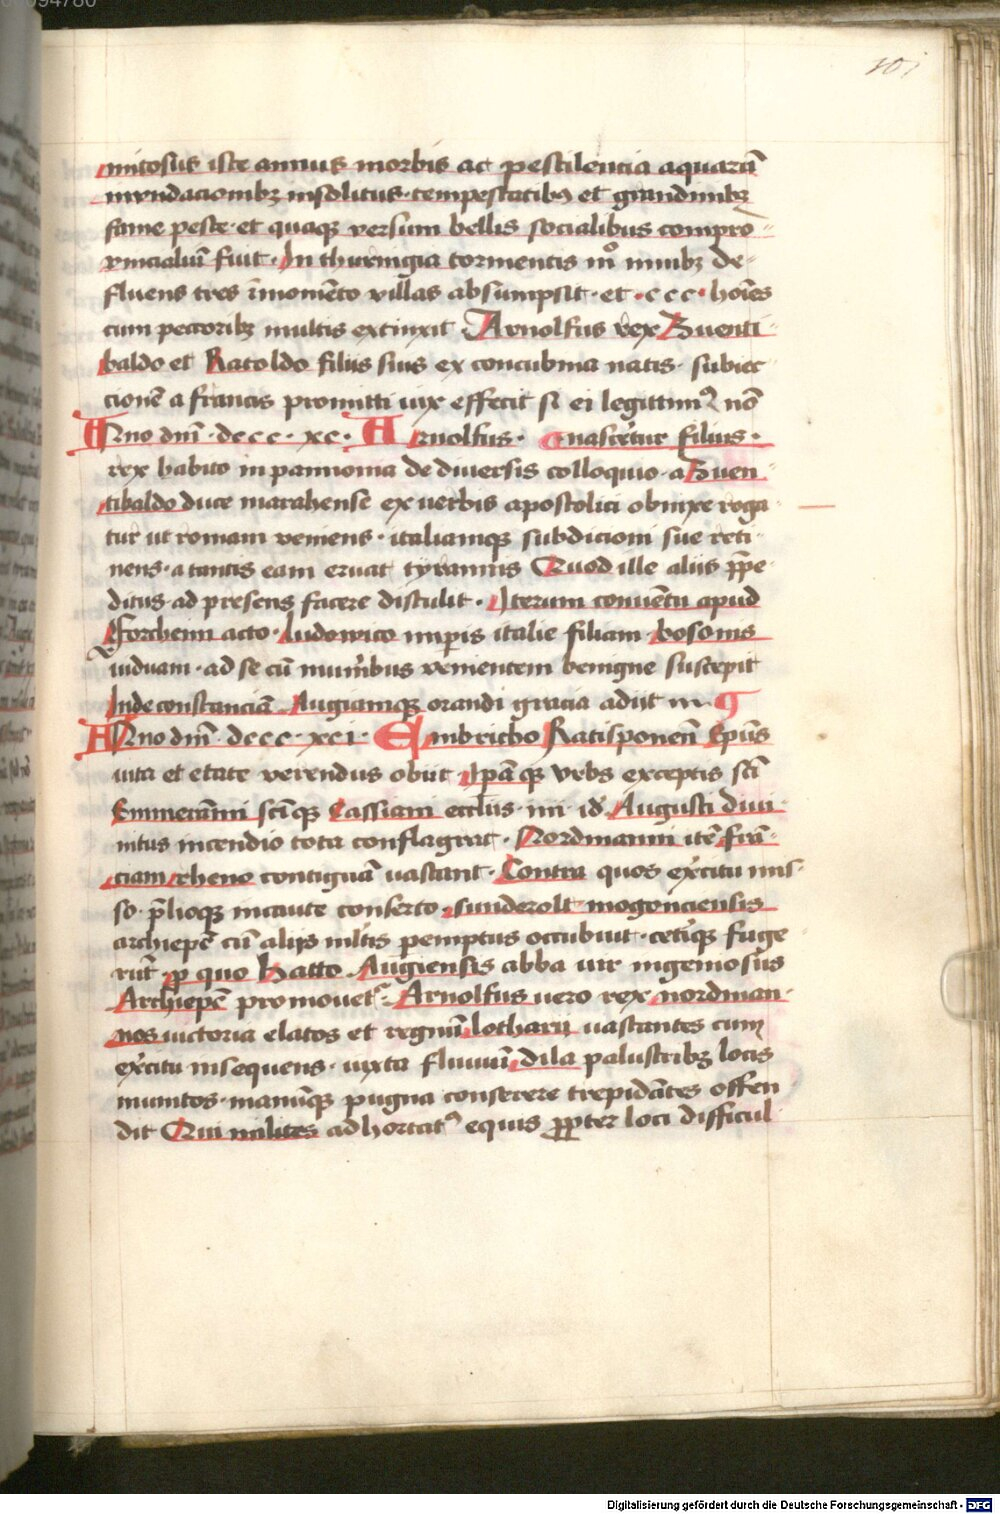 101
mitosus iste annus morbis ac pestilentia aquarū
inundacionibꝫ insolitus · tempestatibꝰ et grandinibꝫ
fame peste · et quaqꝫ versum bellis socialibus compro
vincialiū fuit · In thuringia tormentis nimbꝫ de-
fluens tres ī momēto villas absumpsit · et · ccc · hoīes
cum peccoribꝫ multis extinxit · Arnolfus rex Zuenti
baldo et Ratoldo filiis suis ex concubina natis · subiec
cionē a francis promitti uix effecit si ei legittimꝰ nō
Anno dn̄i · dccc · xc · Arnolfus · nascetur filius ·
rex habito in pannonia de diversis colloquio · a Zuen
tibaldo duce marahense ex verbis apostolici obnixe roga
tur ut romam veniens · italiamqꝫ subdicioni sue reti
nens · a tantis eam eruat tyrannis Quod ille aliis p̄pe
ditus · ad presens facere distulit · Iterum conuētu apud
Forcheim acto · Ludowico imꝑis italie filiam · bosonis
uiduam · ad se cū munībus venientem benigne suscepit
Inde constanciā Augiamqꝫ orandi gracia adiit
Anno dn̄i · dccc · xci · Embricho Ratisponeñ Ep̄us
uita et etate verendus obiit Ip̄aqꝫ vrbs exceptis sc̄i
Emmerāmi sc̄iqꝫ Cassiani ecclīis · iiii · id᷑ Augusti diui
nitus incendio tota conflagrat · Nordmanni itē frā-
ciam rheno contiguā uastant · Contra quos ex̄citu mis-
so · p̄lioqꝫ incaute conserto · sunderolt mogonciensis
archiepē cū alijs ml̄tis pemptus occubuit · cetīqꝫ fuge
rūt ꝓ quo Hatto · Augiensis abba uir ingeniosus
Archiepē promouet᷑ · Arnolfus uero rex nordman-
nos uictoria elatos et regnū lotharij uastantes cum
ex̄citu insequens · iuxta fluuiū dila palustribꝫ locis
munitos · manūqꝫ pugna conserere trepidātes offen
dit Qui milites adhortatꝰ equis ꝓpter loci difficul
Digitalisierung gefördert durch die Deutsche Forschungsgemeinschaft · DFG